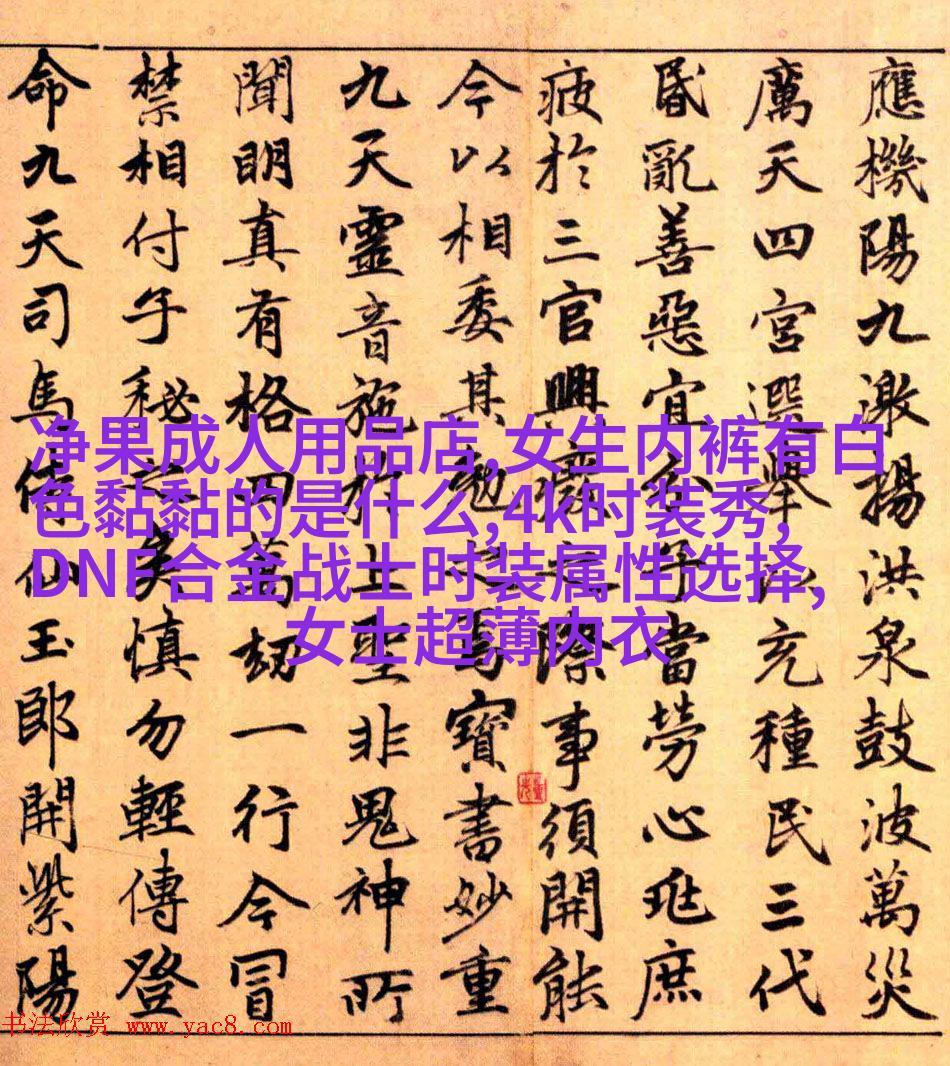 應機陽九激揚洪泉鼓波萬災
厲天四宮選舉充種民三代
昏亂善惡宜分子當勞心庶
疲於三官興廢之際事須開能
今以相委其勉之焉寶書妙重
九天靈音施於上聖非鬼神所
聞明真有格四萬劫一行今冒
禁相付子秘之矣慎勿輕傳登
命九天司馬侍仙玉郎開紫陽
净果成人用品店,女生内裤有白
色黏黏的是什么,4k时装秀,
DNF合金战士时装属性选择,
女士超薄内衣
书法欣赏 www.yac8.com